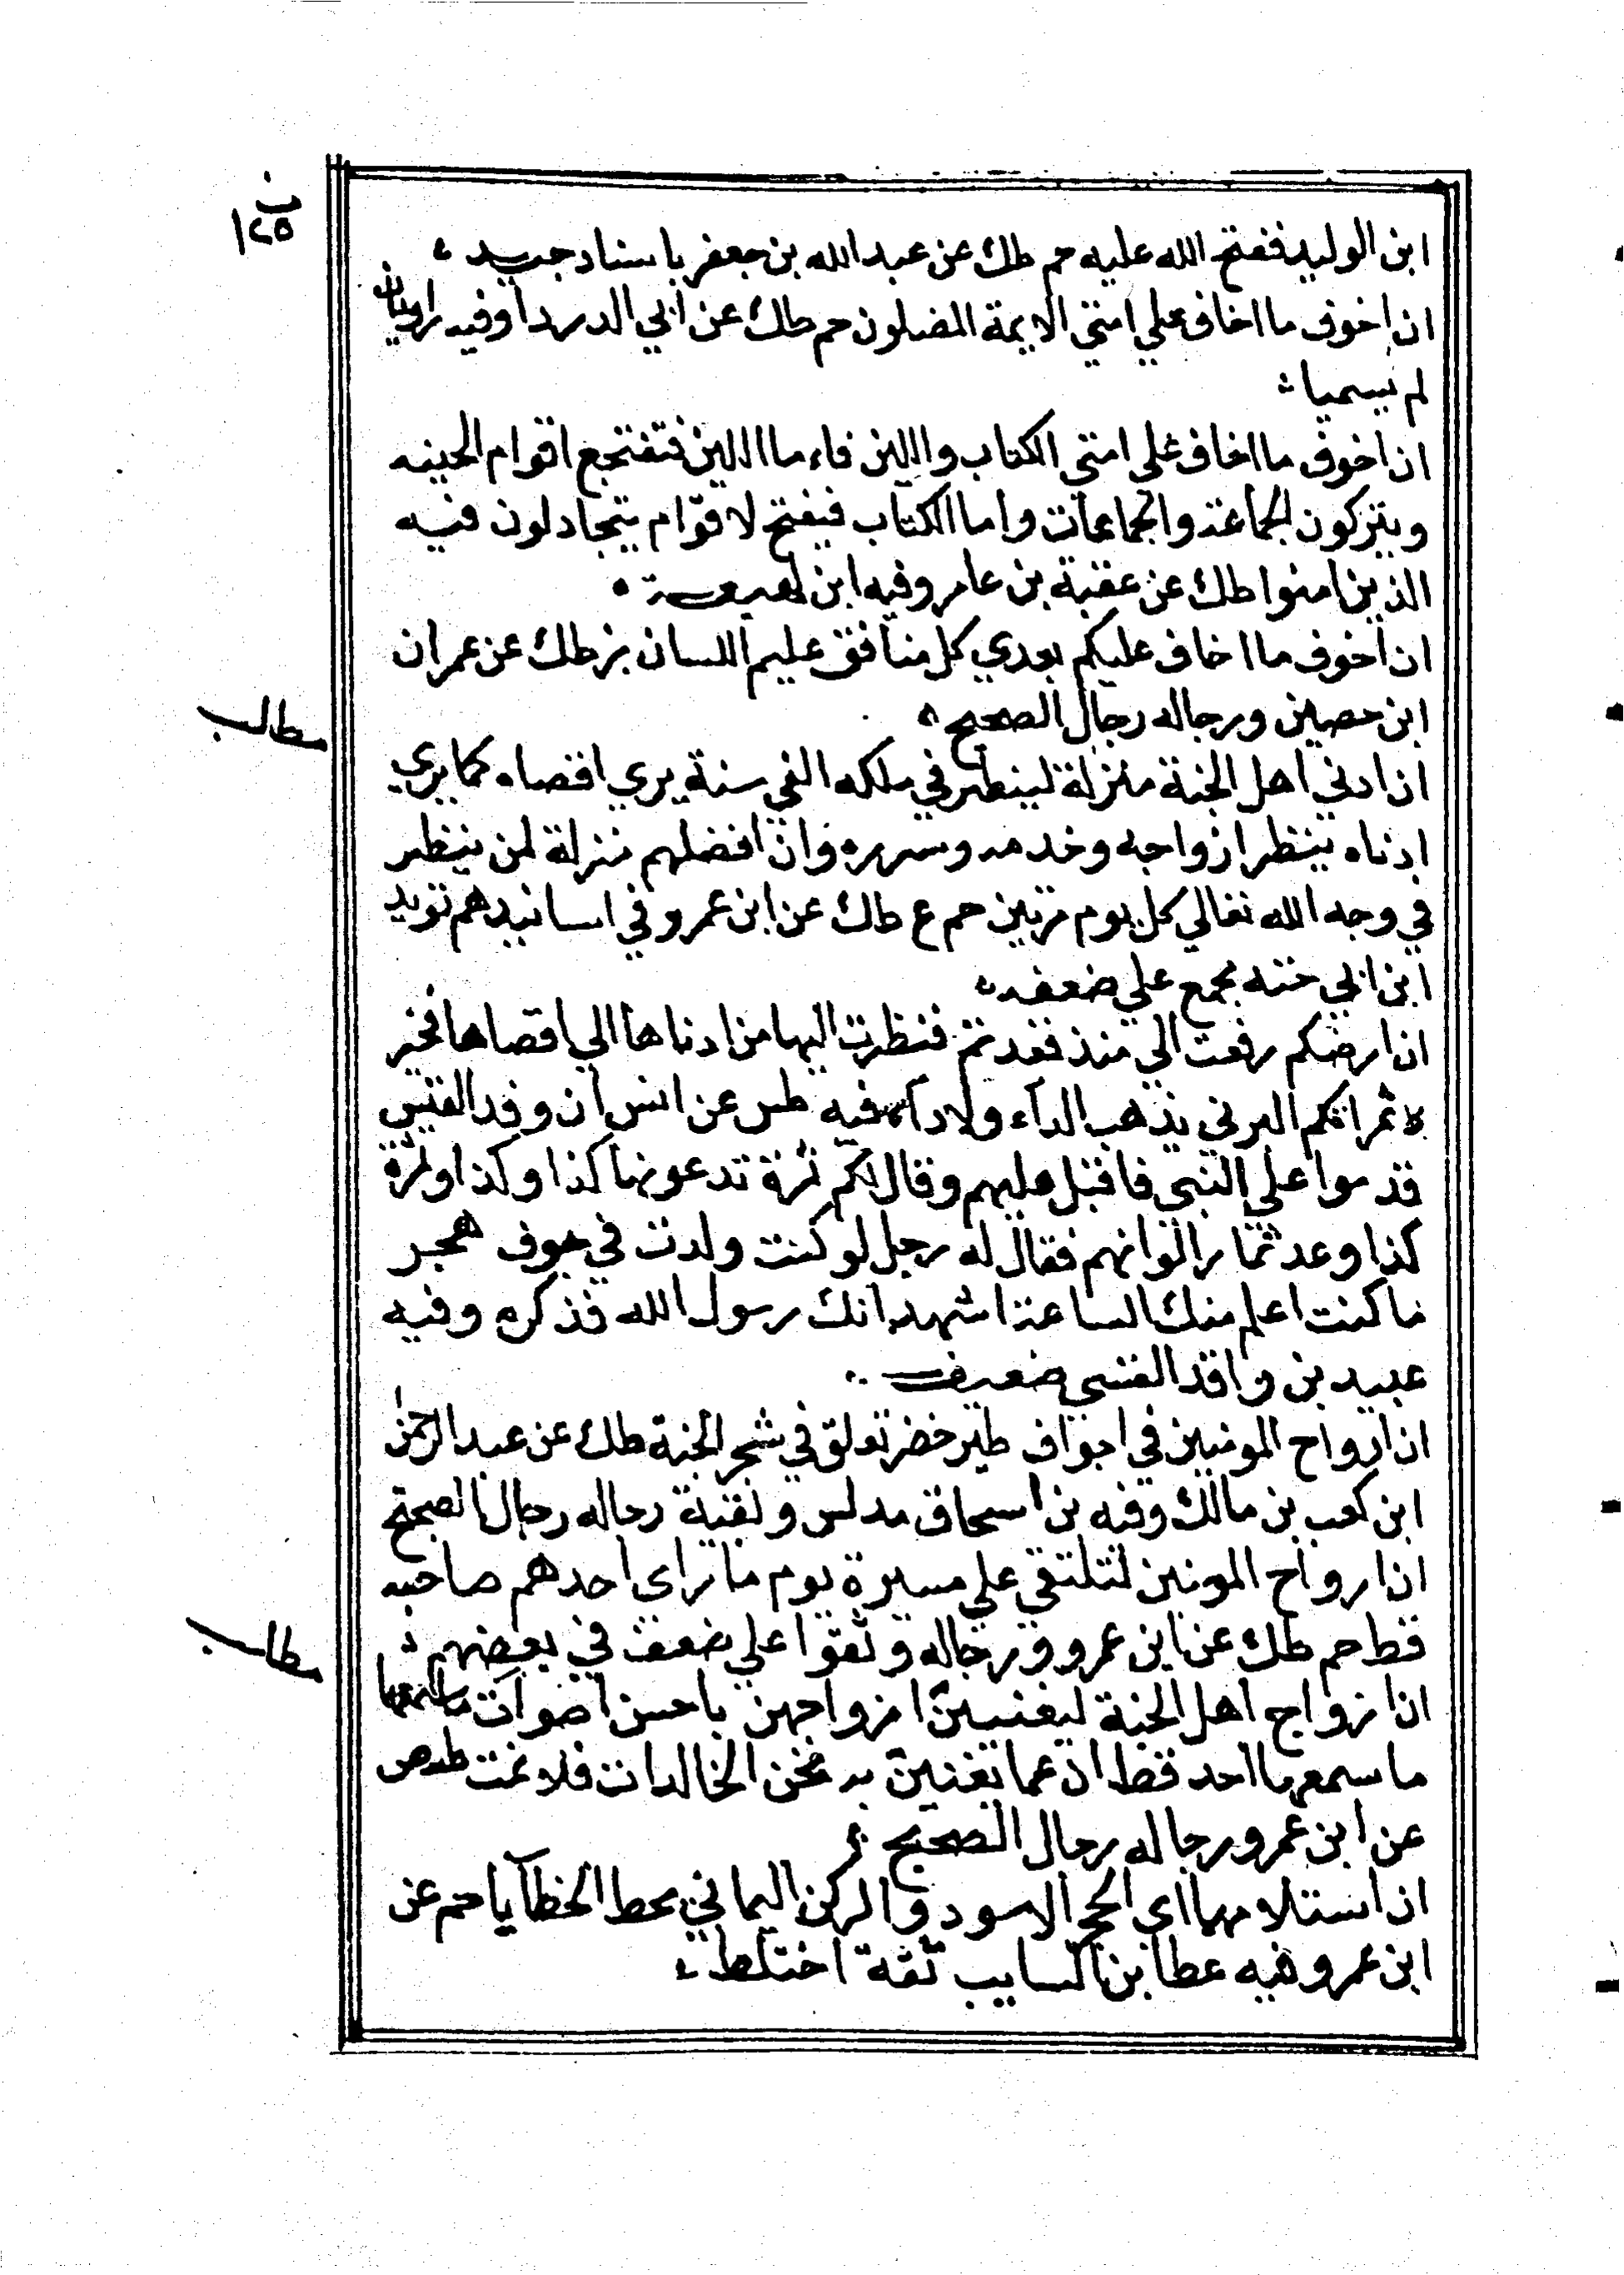 ب
١٢٥
ابن الوليد ففتح الله عليه حم طك عن عبد الله بن جعفر باسناد جيد
ان اخوف ما اخاف علي امتي الايمة المضلون حم طك عن ابي الدردا وفيه راويان
لم يسميا
ان اخوف ما اخاف علي امتي الكتاب واللبن فاما اللبن فتفتجع اقوام الحبنه
ويتركون الجماعة والجماعات واما الكتاب فيفتح لاقوام يتجادلون فيه
الذين امنوا طك عن عقبة بن عامر وفيه ابن لهيعة
ان اخوف ما اخاف عليكم بعدي كل منافق عليم اللسان بز طك عن عمران
ابن حصين ورجاله رجال الصحيح
مطالب
ان ادني اهل الجنة منزلة لينظر في ملكه الفي سنة يري اقصاه كما يري
ادناه ينظر ازواجه وخدمه وسرره وان افضلهم منزلة لمن ينظر
في وجه الله تعالي كل يوم مرتين حم ع طك عن ابن عمرو في اسانيدهم ثوير
ابن ابي خته مجمع علي ضعفه
ان ارضكم رفعت الي منذ قعدتم فنظرت اليها من ادناها الي اقصاها فخير
لا ثمراتكم البرني يذهب الداء ولا داء فيه طس عن انس ان وفد القيس
قدموا علي النبي فاقبل عليهم وقال لكم تمرة تدعونها كذا وكذا وتمرة
كذا وعد ثمار الوانهم فقال له رجل لو كنت ولدت في جوف هجر
ما كنت اعلم منك الساعة اشهد انك رسول الله فذكره وفيه
عبيد بن واقد القيسي ضعيف
ان ارواح المومنين في اجواف طير خضر تعلق في شجر الجنة طك عن عبد الرحمن
ابن كعب بن مالك وفيه بن اسحاق مدلس وبقية رجاله رجال الصحيح
ان ارواح المومنين لتلتقي علي مسيرة يوم ما راى احدهم صاحبه
قط حم طك عن ابن عمرو ورجاله وثقوا علي ضعف في بعضهم
مطالب
ان ازواج اهل الجنة ليغنين ازواجهن باحسن اصوات
ما سمعها احد قط ان مما يغنين به نحن الخالدات فلا نمت طمص
عن ابن عمر ورجاله رجال الصحيح
ان استلامهما اي الحجر الاسود والركن اليماني يحط الخطايا حم عن
ابن عمر وفيه عطا بن السايب ثقة اختلط